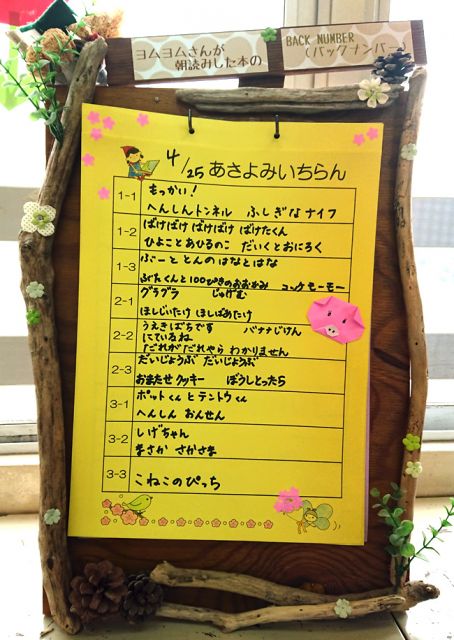 ヨムヨムさんが
朝読みした本の
BACK NUMBER
(バックナンバー)
4/25 あさよみいちらん
1-1
もっかい!
へんしんトンネル ふしぎなナイフ
1-2
ばけばけ ばけばけ ばけたくん
ひよことあひるのこ だいくとおにろく
1-3
ぶーととんのはなとはな
ぶたくんと100ぴきのおおかみ コッケモーモー
2-1
グラグラ じゅげむ
ほしじいたけ ほしばあたけ
2-2
うえきばちです バナナじけん
にているね
だれがだれやら わかりません
2-3
だいじょうぶ だいじょうぶ
おまたせクッキー ぼうしとったら
3-1
ポットくんとテントウくん
へんしん おんせん
3-2
しげちゃん
まさか さかさま
3-3
こねこのぴっち